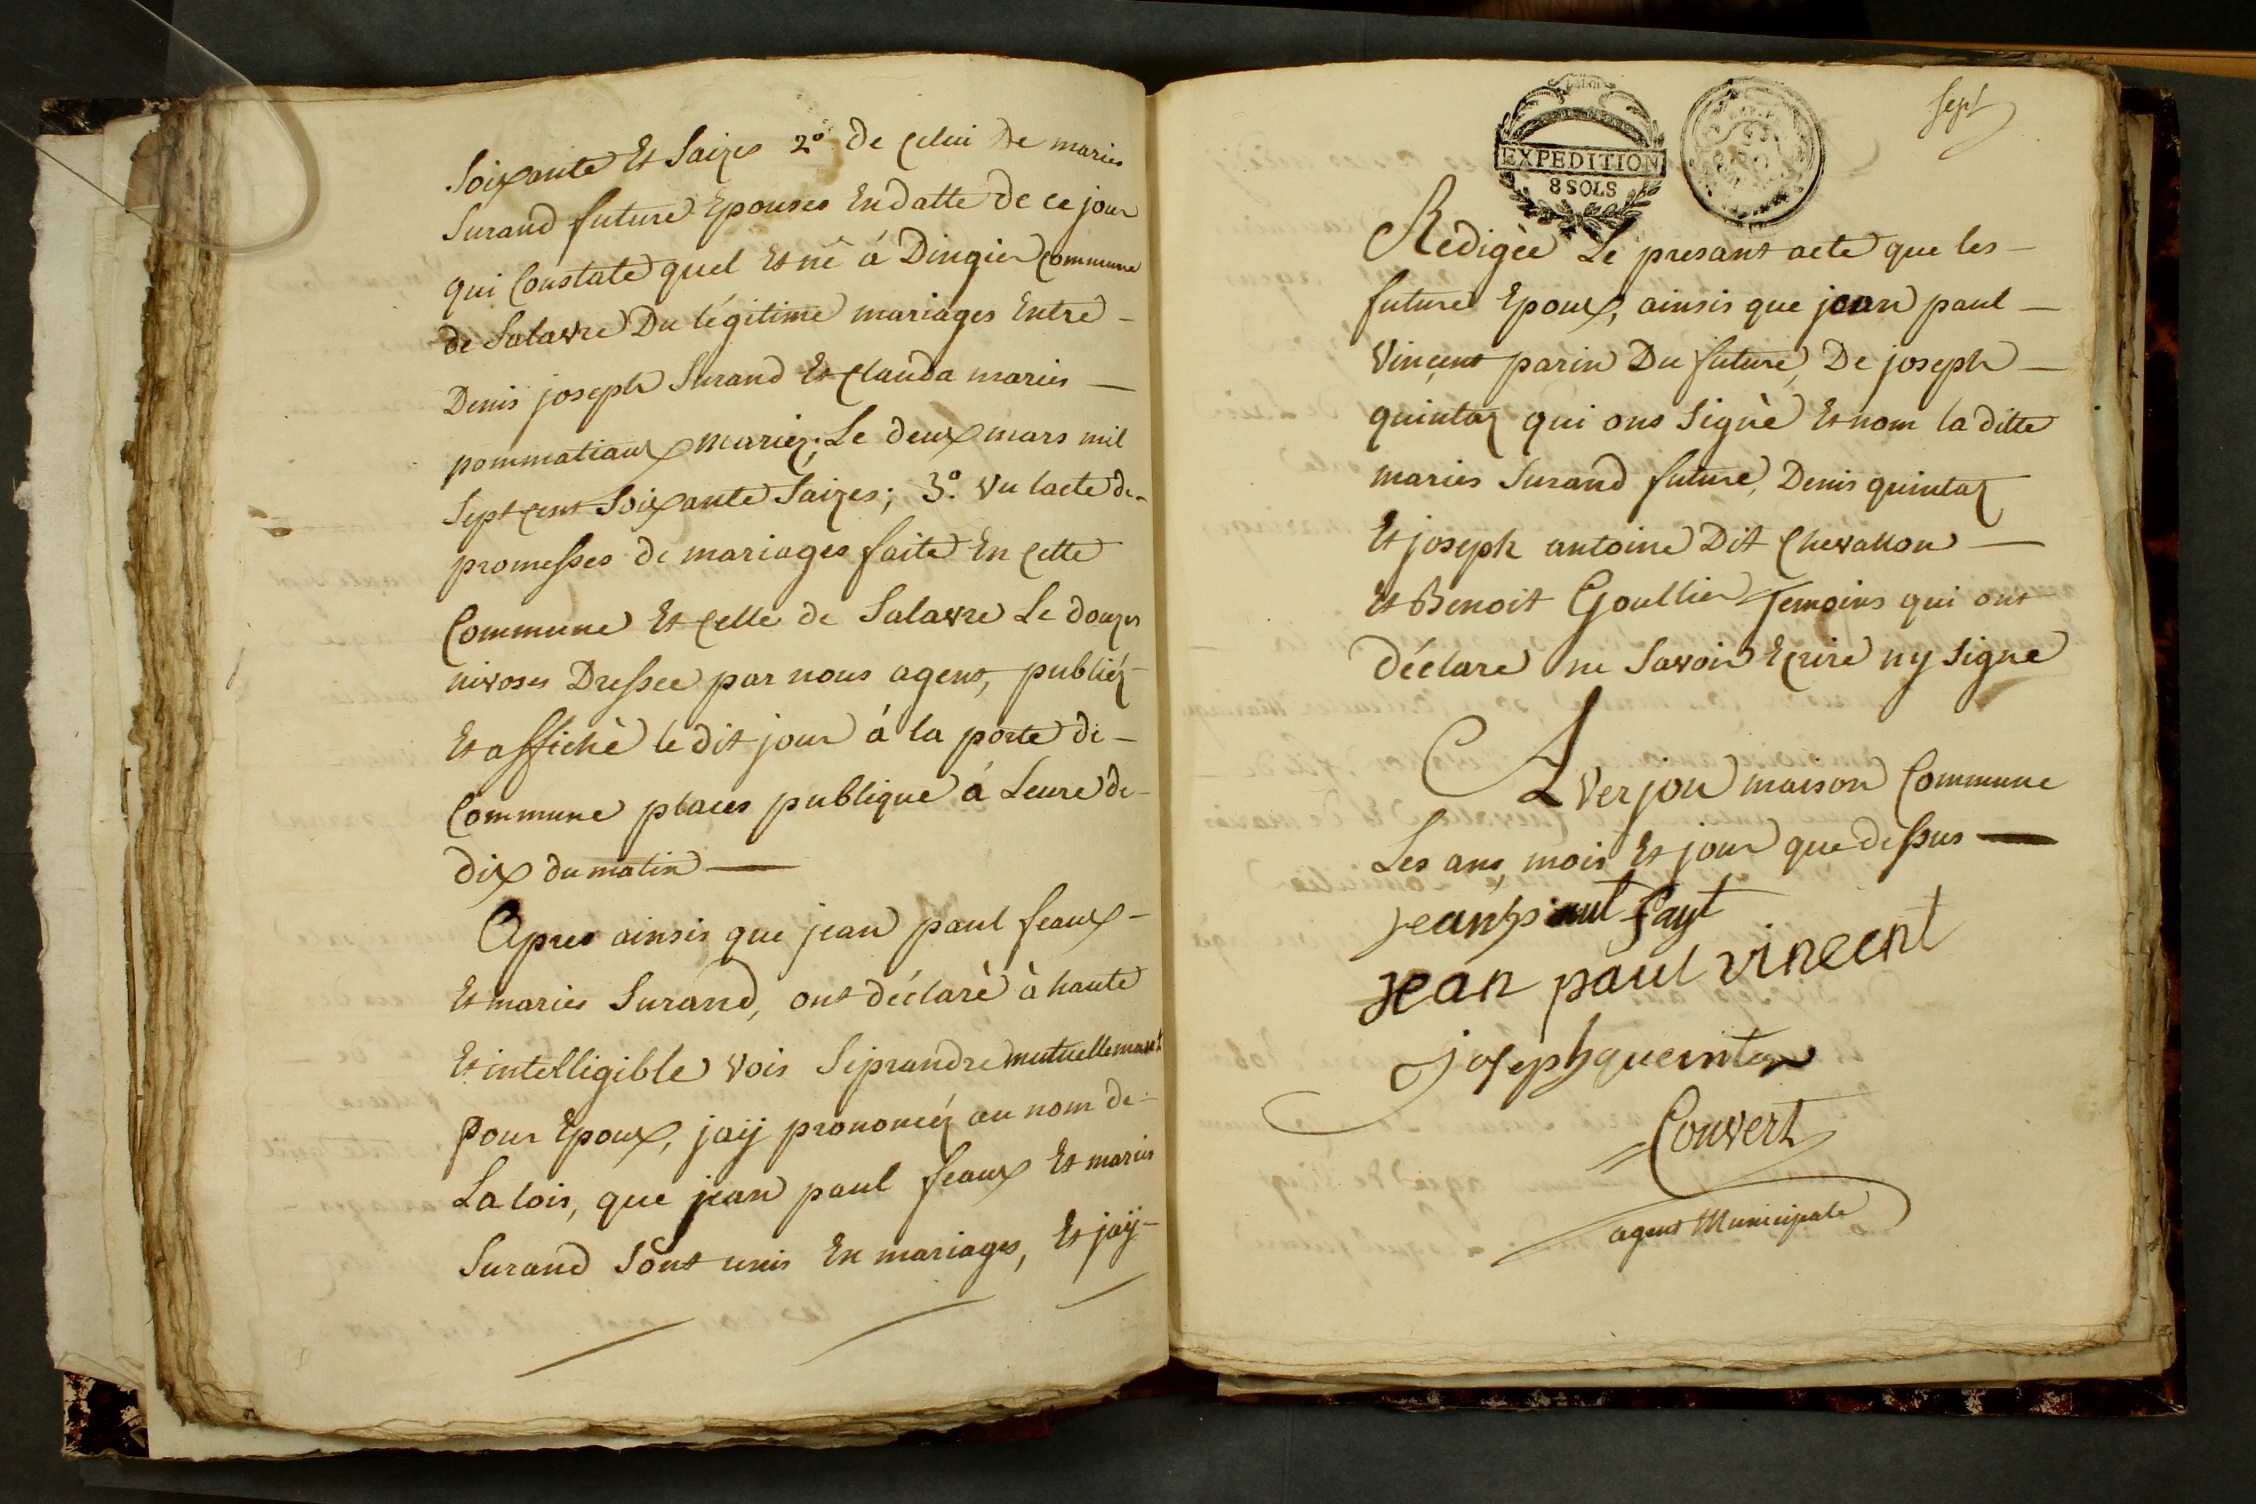 Soixante Et Saizes 2º de Celui De maries
Surand future Epouses En datte de ce jour
qui Constate quel Et né à Dingier Commune
de Salavre Du légitime mariages Entre
Denis joseph Surand Et Clauda maries
pommatiaux mariéz; Le deux mars mil
Sept Cent Soixante Saizes; 3º. Vu lacte de
promesses de mariages faite En Cette
Commune Et Celle de Salavre Le douzes
nivoses Dressee par nous agent, publiéz
Et affiché le dit jour à la porte de
Commune places publique à Leure de
dix du matin
Apres ainsis que jean paul feaux
Et maries Surand, ont déclaré à haute
Et intelligible Vois Se prandre mutuellemant
pour Epoux, jaÿ prononcéz au nom de
La lois, que jean paul feaux Et maries
Surand Sont unis En mariages, Et jaÿ
sept
EXPEDITION
8 SOLS
Redigèe Le presant acte que les
future Epoux, ainsis que jean paul
Vincent parin Du future, De joseph
quintaz qui ont Signè Et nom la ditte
maries Surand future, Denis quintaz
Et joseph antoine Dit Chevallon
Et Benoit Goullier Temoins qui ont
déclare ne Savoir Ecrire ny Signe
A Verjon maison Commune
Les ans, mois Et jour que dessus
jean paul fayt
jean paul vincent
joseph queintaz
Couvert
agent Municipale